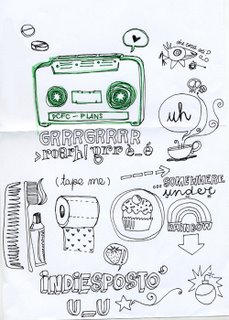 DCFC - PLANS
uh
GRRRGRRRR
>roarh! grr ò_ó
(tape me)
...SOMEWHERE
under
RAINBOW
INDIESPOSTO
U_U